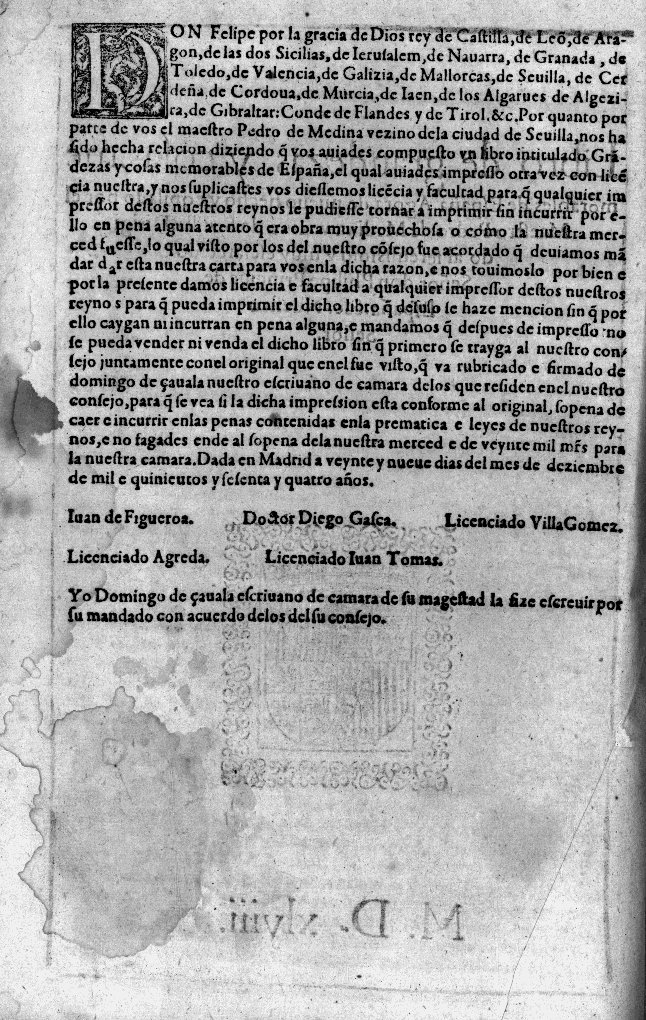 DON Felipe por la gracia de Dios rey de Castilla, de Leõ, de Ara-
gon, de las dos Sicilias, de Ierusalem, de Nauarra, de Granada, de
Toledo, de Valencia, de Galizia, de Mallorcas, de Seuilla, de Cer
deña, de Cordoua, de Murcia, de Iaen, de los Algarues de Algezi-
ra, de Gibraltar: Conde de Flandes y de Tirol. &c. Por quanto por
parte de vos el maestro Pedro de Medina vezino dela ciudad de Seuilla, nos ha
sido hecha relacion diziendo q̃ vos auiades compuesto vn libro intitulado Grã-
dezas y cosas memorables de España, el qual auiades impresso otra vez con licẽ
cia nuestra, y nos suplicastes vos diessemos licẽcia y facultad para q̃ qualquier im
pressor destos nuestros reynos le pudiesse tornar a imprimir sin incurrir por e-
llo en pena alguna atento q̃ era obra muy prouechosa o como la nuestra mer-
ced fuesse, lo qual visto por los del nuestro cõsejo fue acordado q̃ deuiamos mã
dar dar esta nuestra carta para vos enla dicha razon, e nos touimoslo por bien e
por la presente damos licencia e facultad a qualquier impressor destos nuestros
reyno s para q̃ pueda imprimir el dicho libro q̃ desuso se haze mencion sin q̃ por
ello caygan ni incurran en pena alguna, e mandamos q̃ despues de impresso no
se pueda vender ni venda el dicho libro sin q̃ primero se trayga al nuestro con-
sejo juntamente conel original que enel fue visto, q̃ va rubricado e firmado de
domingo de çauala nuestro escriuano de camara delos que residen enel nuestro
consejo, para q̃ se vea si la dicha impression esta conforme al original, sopena de
caer e incurrir enlas penas contenidas enla prematica e leyes de nuestros rey-
nos, e no fagades ende al sopena dela nuestra merced e de veynte mil mr̃s para
la nuestra camara. Dada en Madrid a veynte y nueue dias del mes de deziembre
de mil e quinieutos y sesenta y quatro años.
Iuan de Figueroa. Doctor Diego Gasca. Licenciado VillaGomez.
Licenciado Agreda. Licenciado Iuan Tomas.
Yo Domingo de çauala escriuano de camara de su magestad la fize escreuir por
su mandado con acuerdo delos del su consejo.
M. D. xlviii.